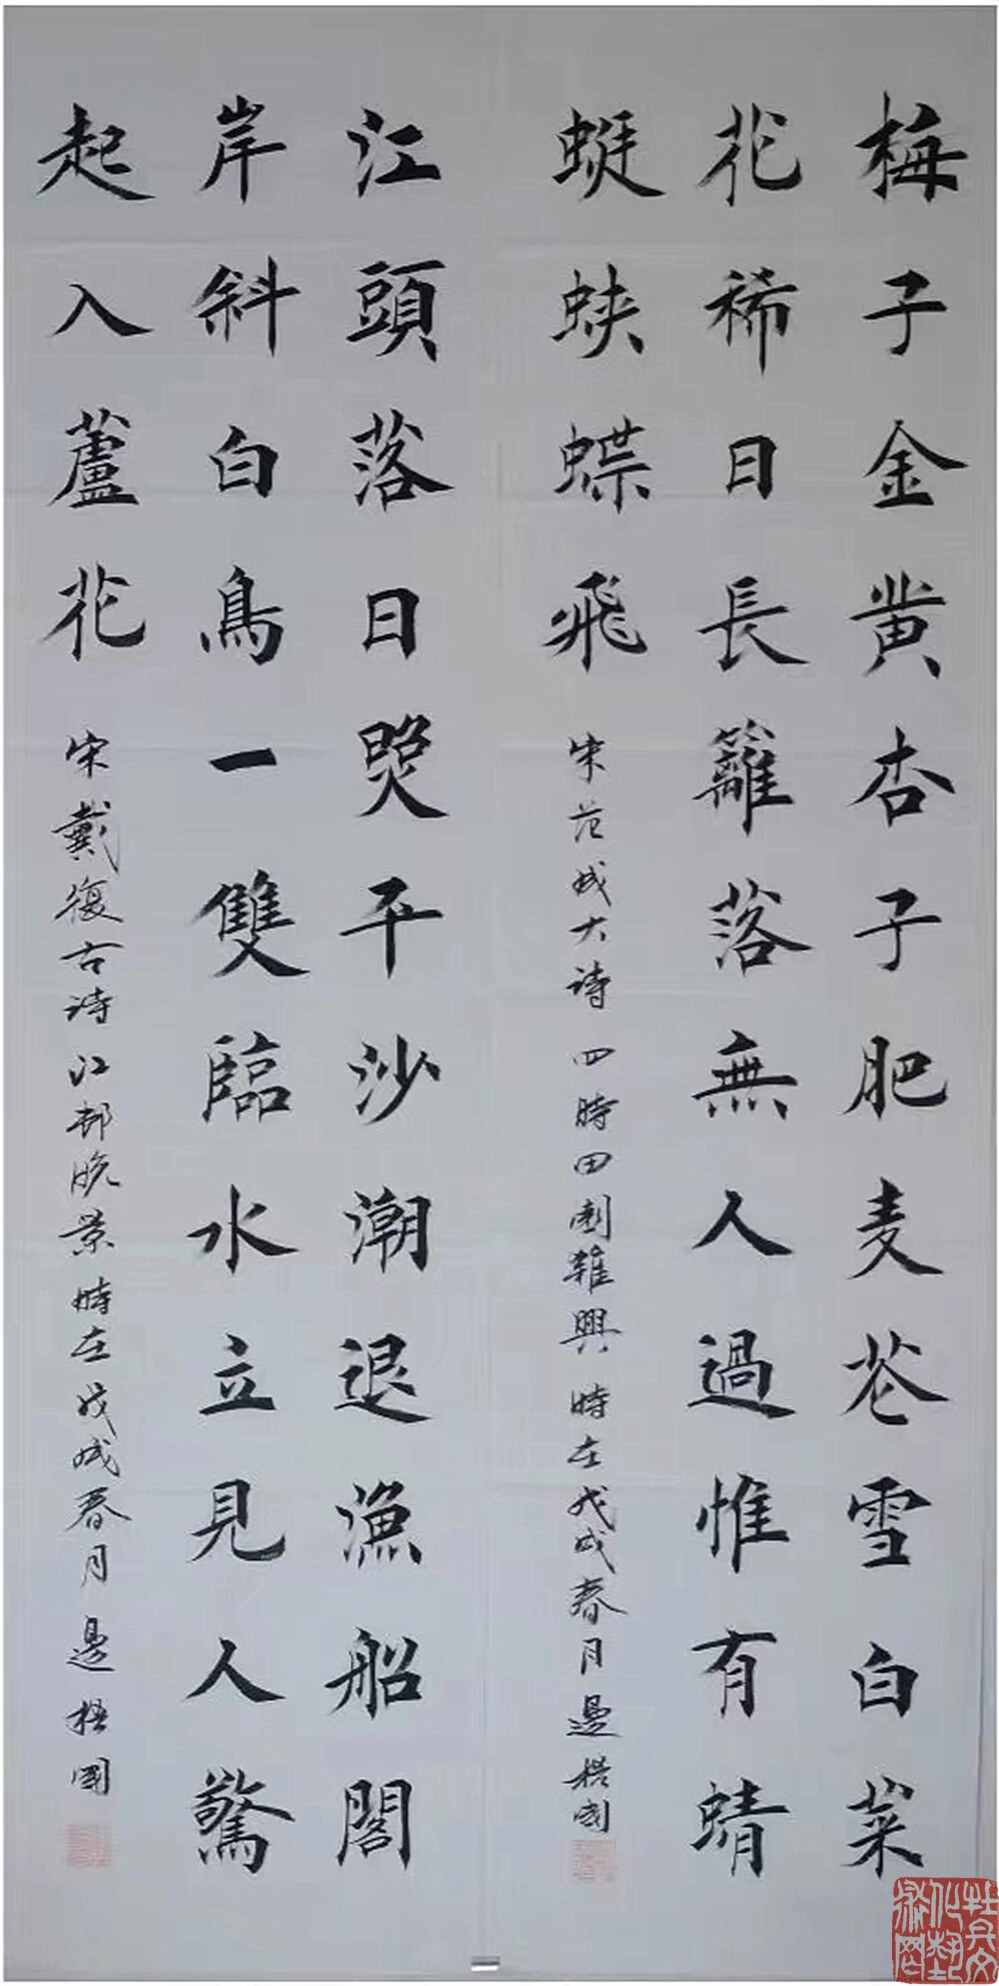 梅子金黄杏子肥麦花雪白菜
花稀日長籬落無人過惟有蜻
蜓蛱蝶飛
宋范成大诗四時田園雜興時在戊戌春月邊國
江頭落日照平沙潮退漁船閣
岸斜白鳥一雙臨水立見人驚
起入蘆花
宋戴復古诗江邨晚景時在戊戌春月邊國